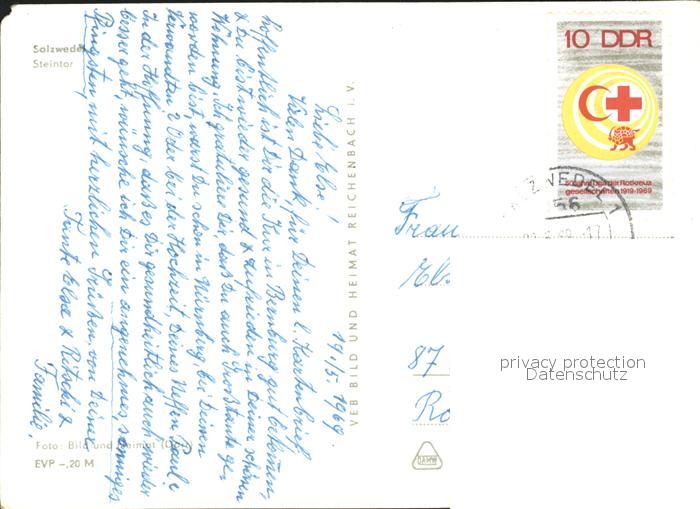 Salzwedel
Steintor
19/5. 1969.
Liebe Else!
Vielen Dank, für Deinen l. Kartenbrief.
Hoffentlich ist Dir die Kur in Bernburg gut bekommen,
& Du bist wieder gesund & zufrieden in Deiner schönen
Wohnung. Ich gratuliere Dir, daß Du auch Großtante ge-
worden bist, warst Du schon in Nürnberg bei Deinen
Verwandten? Oder bei der Hochzeit, Deines Neffen
In der Hoffnung, daß es Dir gesundheitlich auch wieder
besser geht, wünsche ich Dir ein angenehmes sonniges
Pfingsten, mit herzlichen Grüßen, von Deiner
Tante Elsa &
Familie.
Foto: Bild und Heimat
EVP -,20 M
VEB BILD UND HEIMAT REICHENBACH I. V.
10 DDR
50 Jahre Liga der Rotkreuz
gesellschaften 1919-1969
Frau
87
privacy protection
Datenschutz